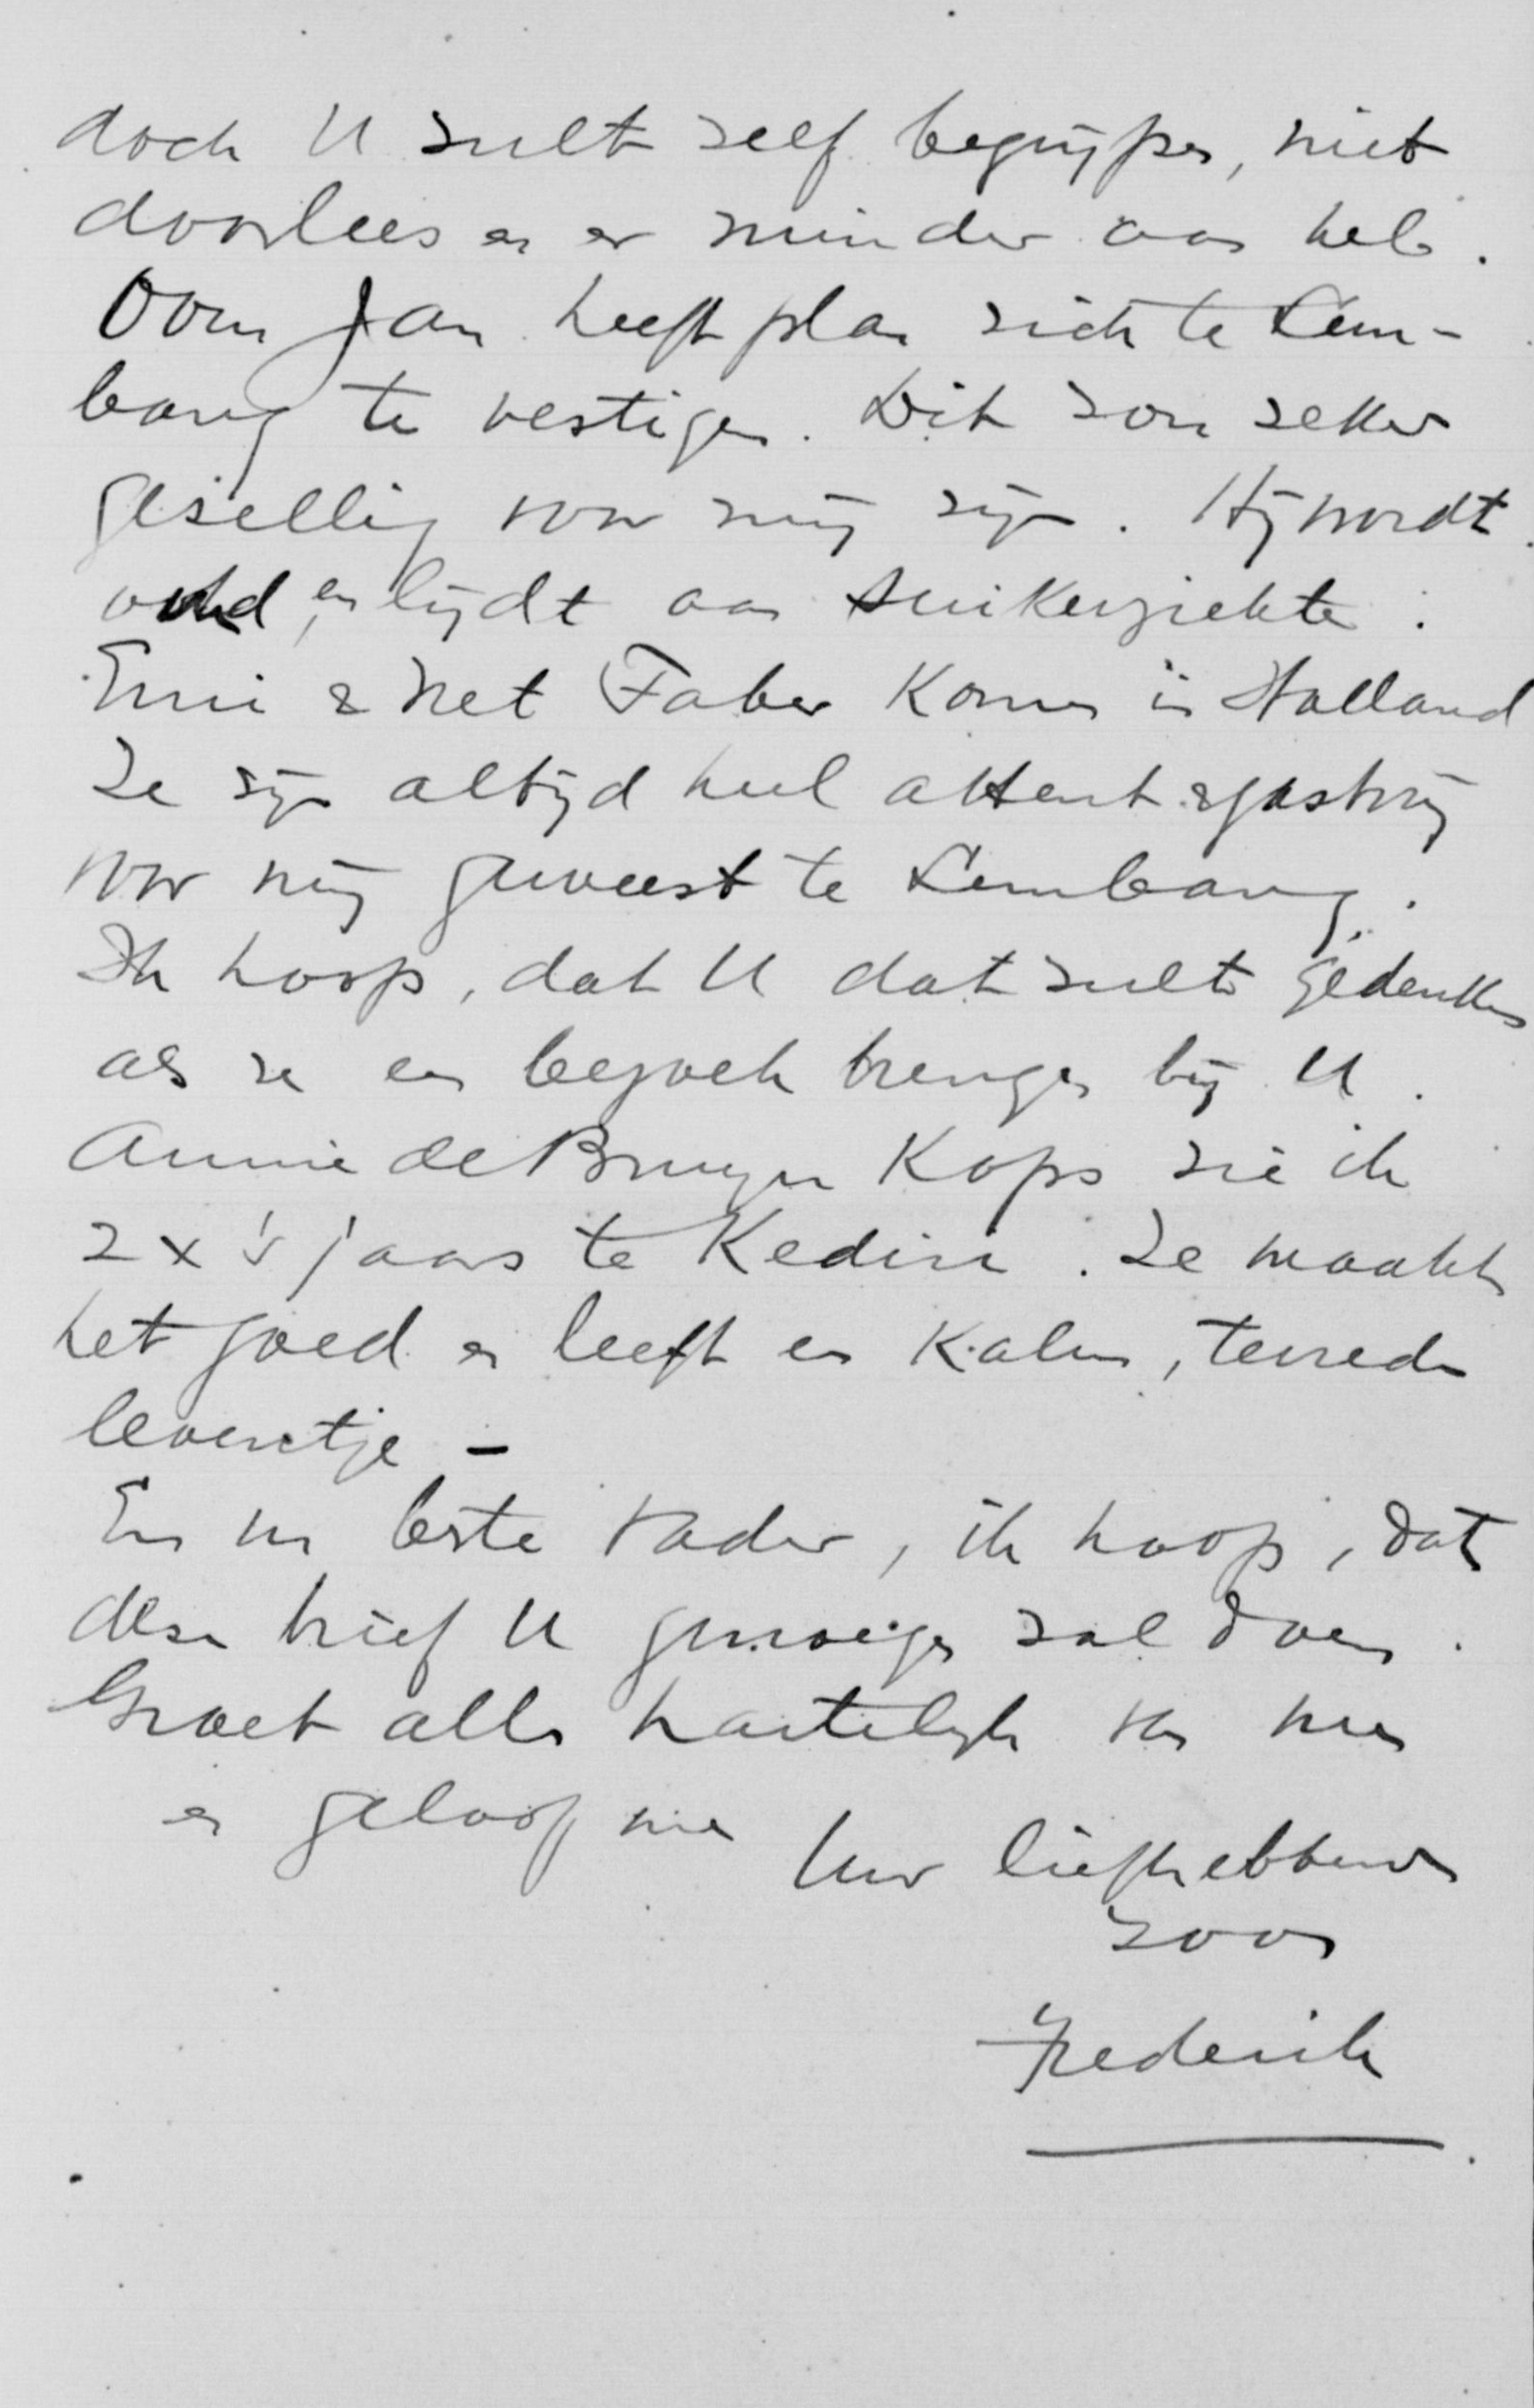 doch U zult zelf begrijpen, niet
doorlees en er minder aan heb.
Oom Jan heeft plan zich te Lem-
bang te vestigen. Dit zou zeker
gezellig voor mij zijn. Hij wordt
oud, en lijdt aan suikerziekte.
& Net Faber komen in Holland
Ze zijn altijd heel attent & gastvrij
voor mij geweest te Lembang.
Ik hoop, dat U dat zult gedenken
als ze een bezoek brengen bij U.
Annie de Bruyn Kops zie ik
2x 's jaars te Kediri. Ze maakt
het goed en leeft een kalm, tevreden
leventje -
En nu beste Vader, ik hoop, dat
deze brief U genoegen zal doen.
Groet allen hartelijk van mij
en geloof me Uw liefhebbende
zoon
Frederik